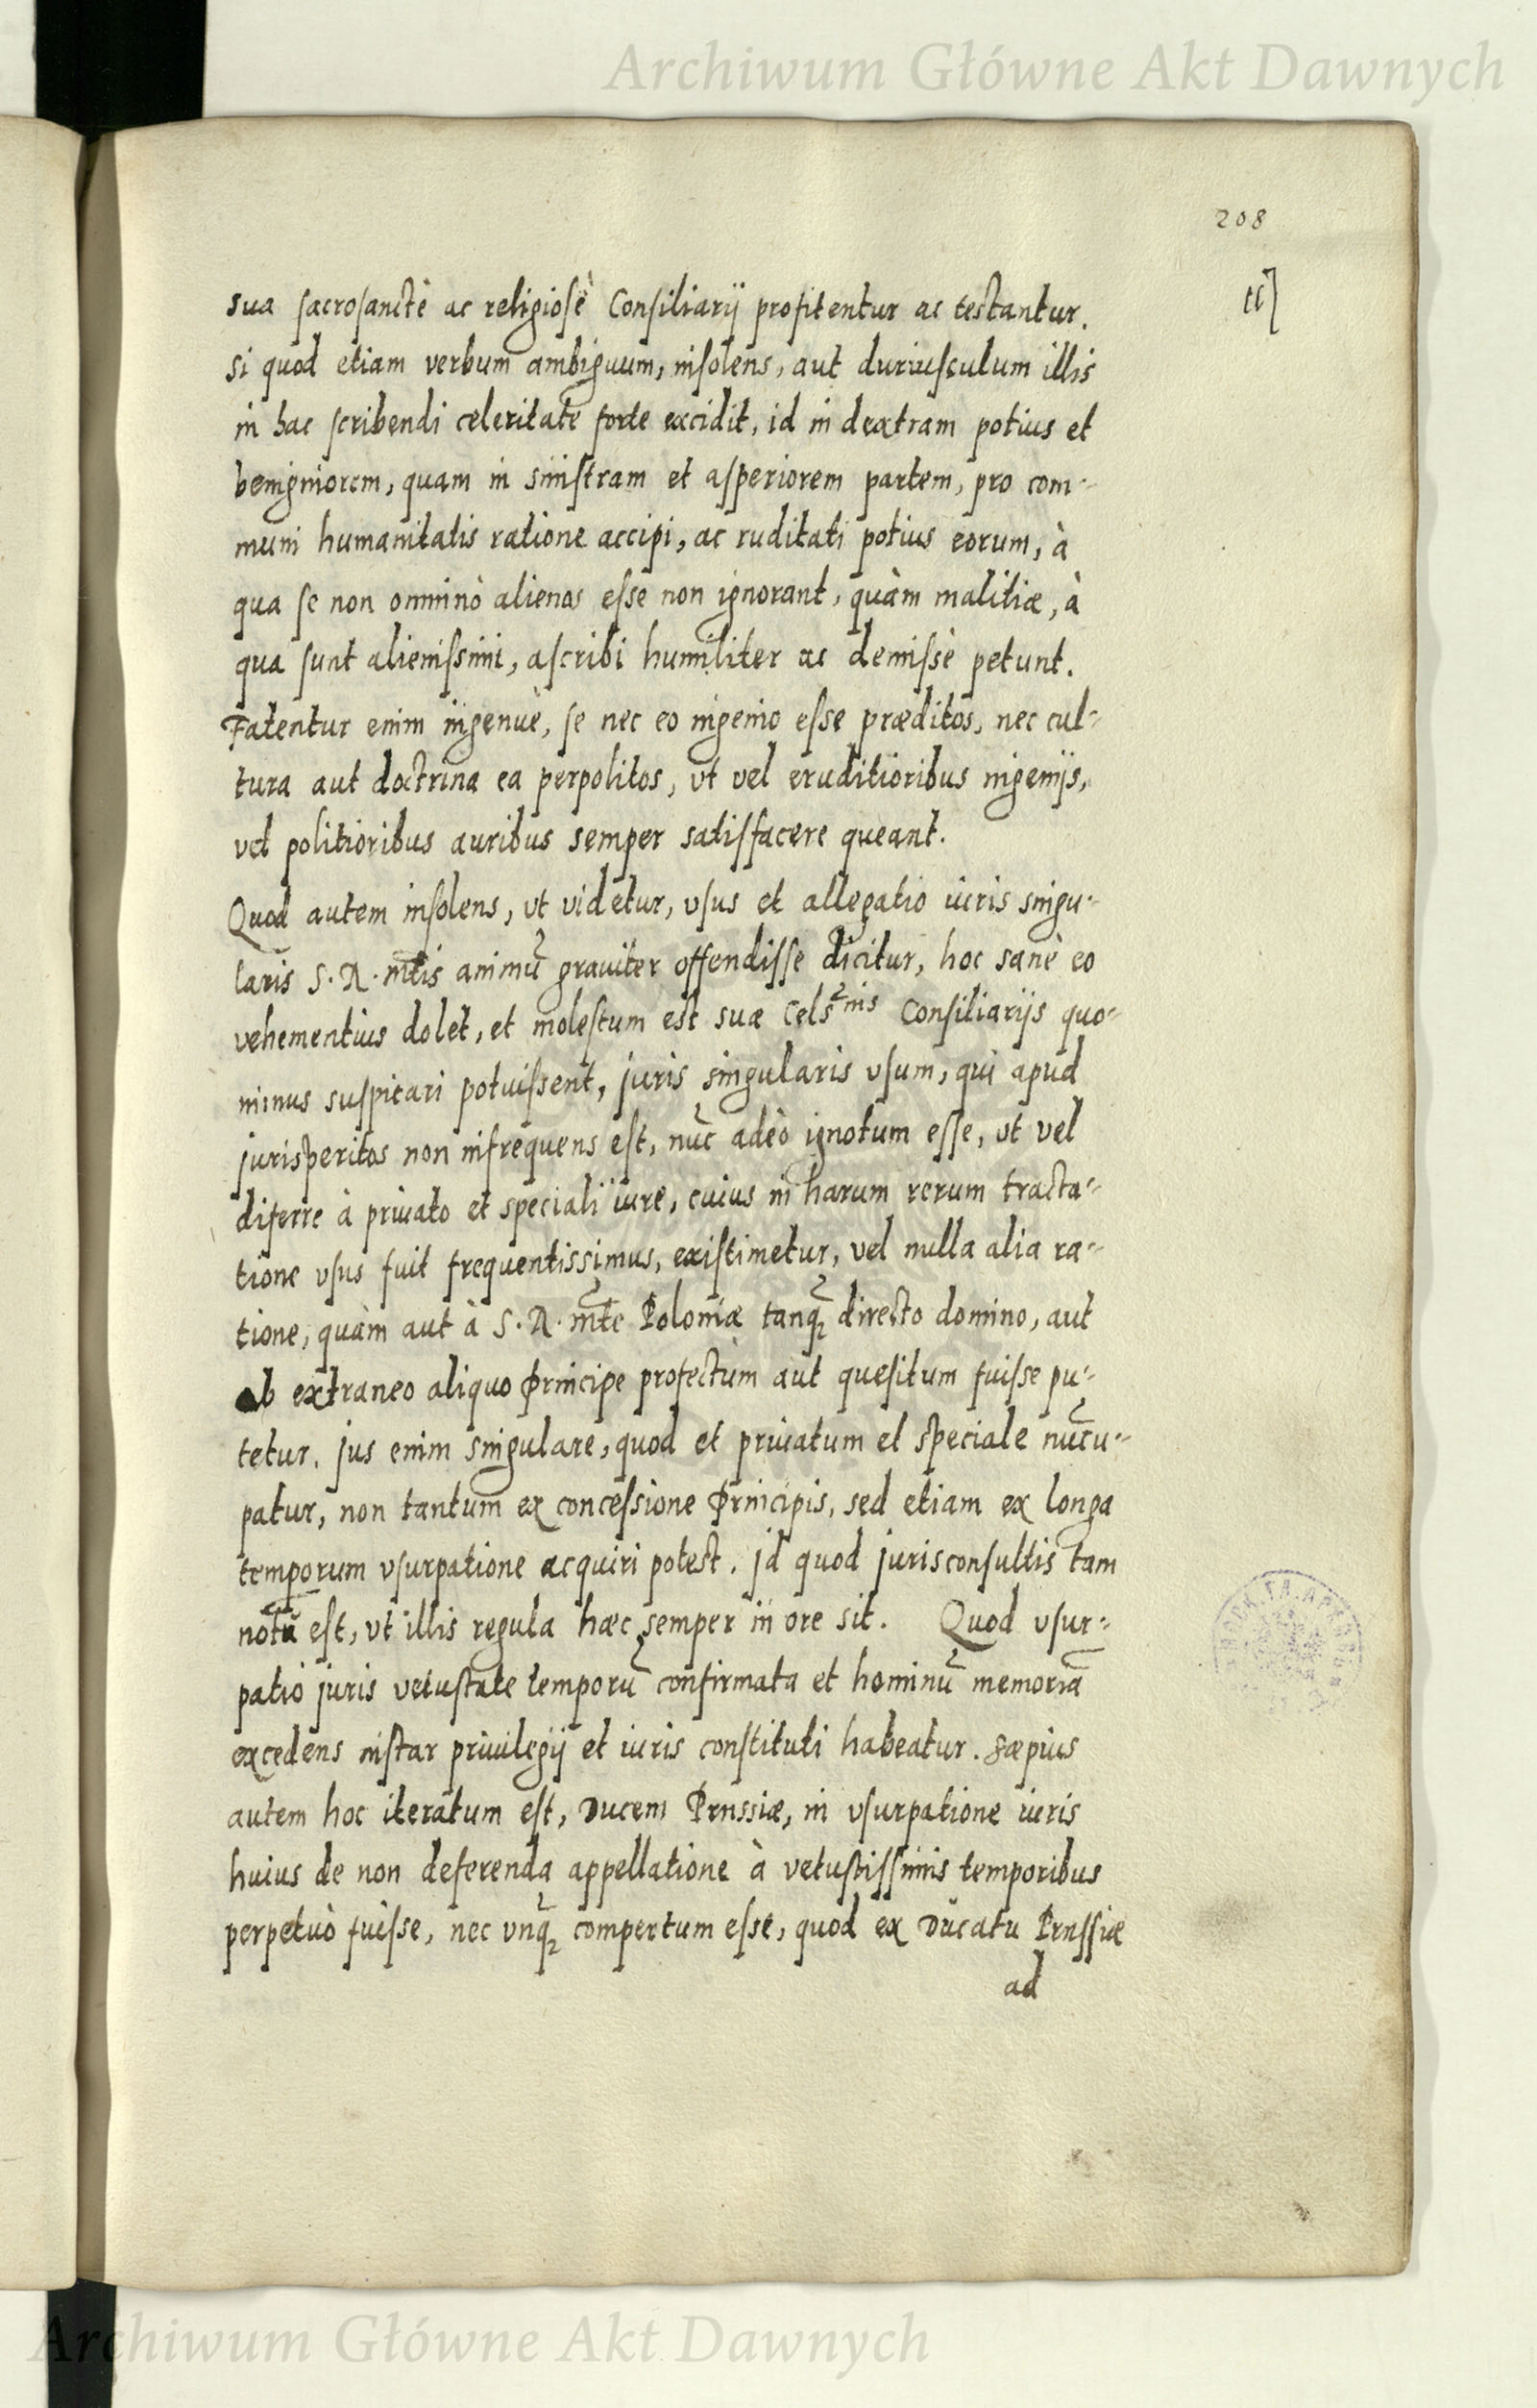 Archiwum Główne Akt Dawnych
208
sua sacrosanctè ac religiosè Consiliarij profitentur ac testantur.
si quod etiam verbum ambiguum, insolens, aut duriusculum illis
in hac scribendi celeritate forte excidit, id in dextram potius et
benigniorem, quam in sinistram et asperiorem partem, pro com-
muni humanitatis ratione accipi, ac ruditati potius eorum, à
qua se non omninò alienos esse non ignorant, quàm malitiæ, à
qua sunt alienissimi, ascribi humiliter ac demissè petunt.
Fatentur enim ingenuè, se nec eo ingenio esse præditos, nec cul-
tura aut doctrina ea perpolitos, vt vel eruditioribus ingenijs,
vel politioribus auribus semper satisfacere queant.
Quod autem insolens, vt videtur, vsus et allegatio iuris singu-
laris S. R. mtis animũ grauiter offendisse dicitur, hoc sanè eo
vehementius dolet, et molestum est suæ Celsnis Consiliarijs quo-
minus suspicari potuissent, juris singularis vsum, qui apud
jurisperitos non infrequens est, nũc adeò ignotum esse, vt vel
diferre à priuato et speciali iure, cuius in harum rerum tracta-
tione vsus fuit frequentissimus, existimetur, vel nulla alia ra-
tione, quàm aut à S. R. mte Poloniæ tanq̃ directo domino, aut
ab extraneo aliquo Principe profectum aut quesitum fuisse pu-
tetur. jus enim singulare, quod et priuatum et speciale nũcu-
patur, non tantum ex concessione Principis, sed etiam ex longa
temporum vsurpatione acquiri potest. jd quod jurisconsultis tam
notũ est, vt illis regula hæc semper in ore sit. Quod vsur-
patio juris vetustate temporũ confirmata et hominũ memoriã
excedens instar priuilegij et iuris constituti habeatur. sæpius
autem hoc iteratum est, Ducem Prussiæ, in vsurpatione iuris
huius de non deferenda appellatione à vetustissimis temporibus
perpetuò fuisse, nec vnq̃ compertum esse, quod ex Ducatu Prussiæ
ad
Archiwum Główne Akt Dawnych